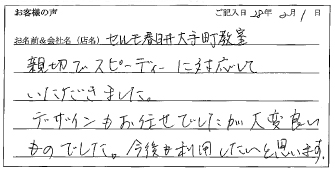 お客様の声 ご記入日 28年 2月 1日
お名前&会社名(店名) セルモ春日井大手町教室
親切でスピーディーに対応して
いただきました。
デザインもお任せでしたが大変良い
ものでした。今後も利用したいと思います。